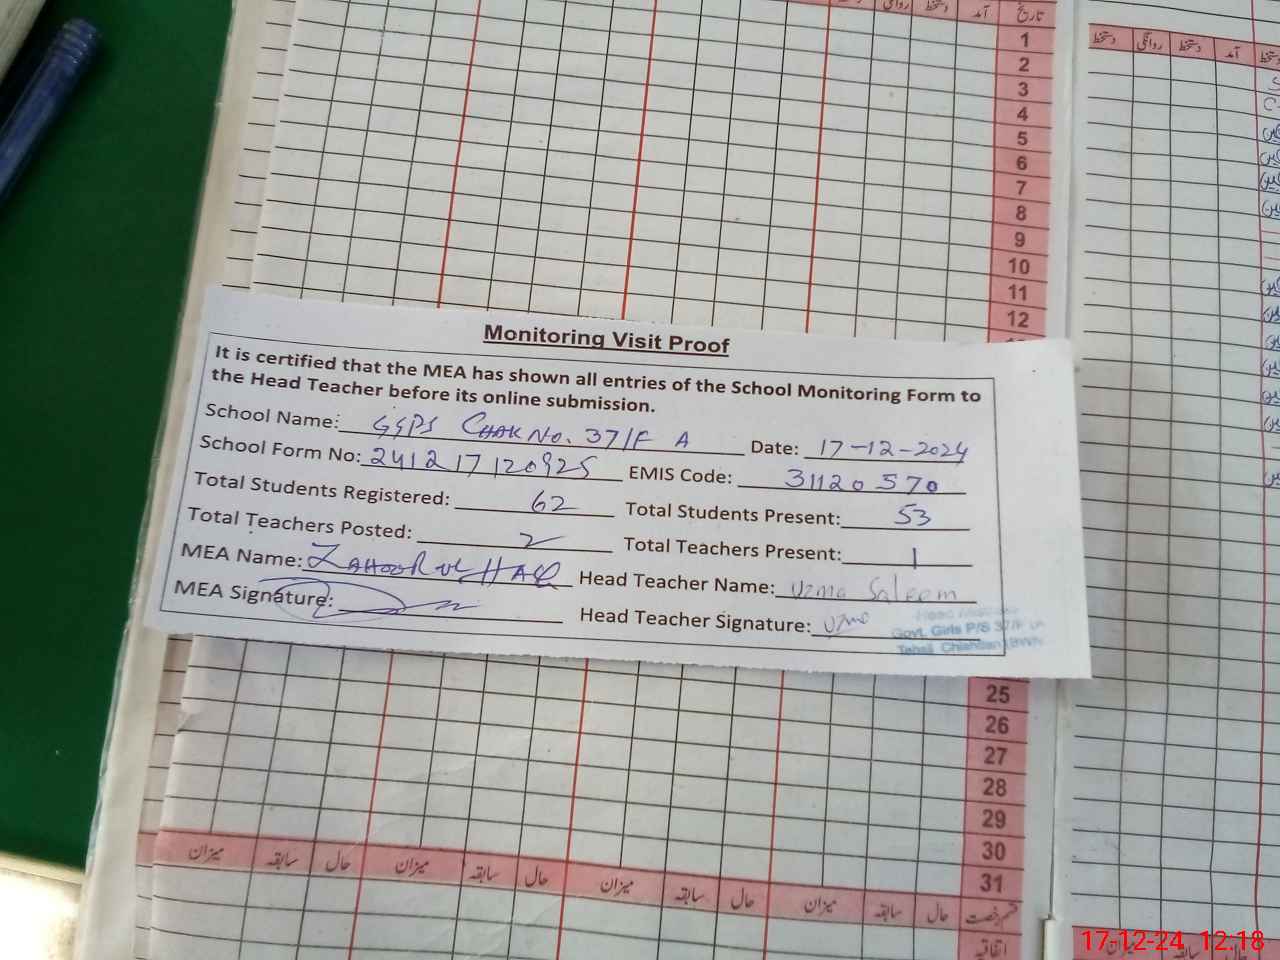 تاریخ آمد دستخط روانگی
1
2
3
4
5
6
7
8
9
10
11
12
دستخط آمد دستخط روانگی دستخط
Monitoring Visit Proof
It is certified that the MEA has shown all entries of the School Monitoring Form to
the Head Teacher before its online submission.
School Name: GGPS CHAK No. 37/F A Date: 17-12-2024
School Form No: 241217120925 EMIS Code: 31120570
Total Students Registered: 62 Total Students Present: 53
Total Teachers Posted: 2 Total Teachers Present: 1
MEA Name: ZAHOOR UL HAQ Head Teacher Name: Uzma Saleem
MEA Signature: Head Teacher Signature: Uzma
Govt. Girls P/S 37/F
Tehsil Chishtian (BWN)
25
26
27
28
29
30
31
حال سابقہ میزان حال سابقہ میزان حال سابقہ میزان حال سابقہ میزان
قسم رخصت
اتفاقیہ
حال سابقہ میزان
17-12-24 12:18